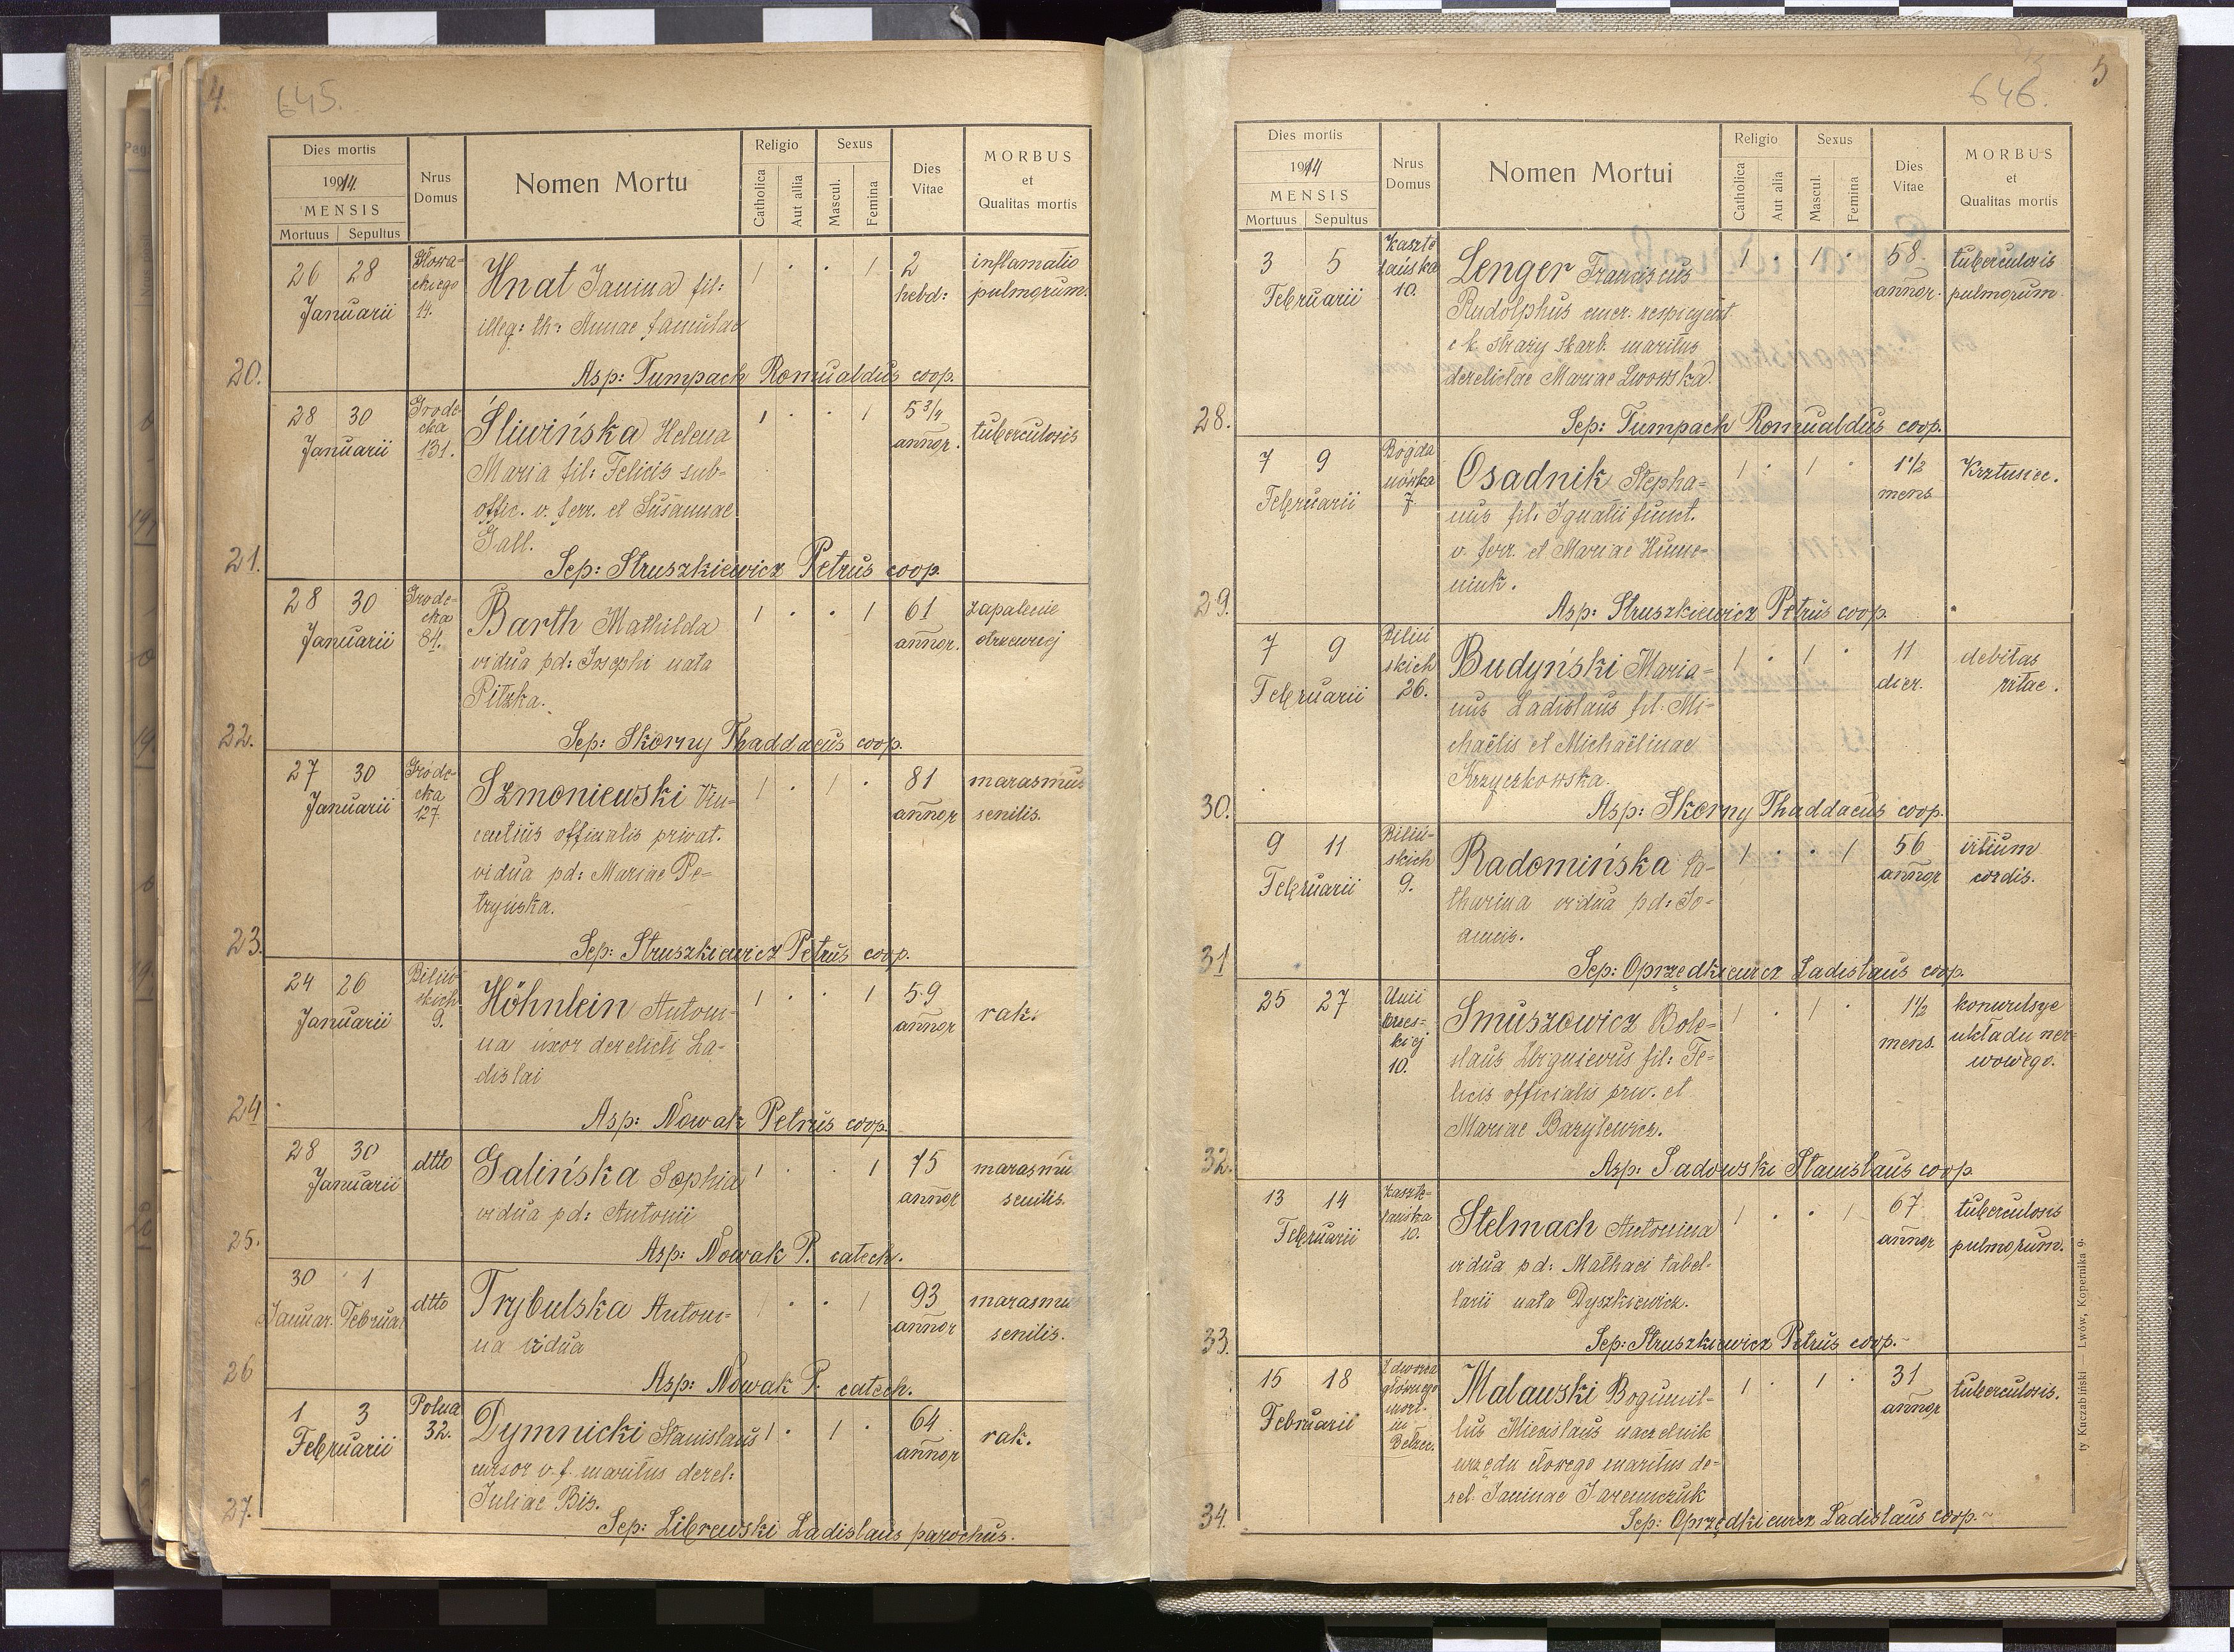 4.
645.
Dies mortis
1914.
MENSIS
Mortuus Sepultus
Nrus Domus
Nomen Mortu
Religio
Catholica
Aut allia
Sexus
Mascul.
Femina
Dies Vitae
MORBUS
et
Qualitas mortis
26 28 Słowa- Hnat Janina fil: 1 . . 1 2 inflamatio
Januarii ckiego 14. illeg: th: Annae famulae hebd: pulmorum.
20. Asp: Tumpach Romualdus coop.
28 30 Grode- Śliwińska Helena 1 . . 1 5 3/4 tuberculosis
Januarii cka 131. Maria fil: Felicis sub- annor.
offic. v. ferr. et Susannae
Gall.
21. Sep: Struszkiewicz Petrus coop.
28 30 Grode- Barth Mathilda 1 . . 1 61 zapalenie
Januarii cka 84. vidua pd: Josephi nata annor. otrzewnej
Pitzka.
22. Sep: Skorny Thaddaeus coop.
27 30 Gróde- Szmoniewski Vin- 1 . 1 . 81 marasmus
Januarii cka 127. centius officialis privat. annor senilis.
vidua pd: Mariae Pe-
tryńska.
23. Sep: Struszkiewicz Petrus coop.
24 26 Biliń- Höhnlein Antoni- 1 . . 1 59 rak.
Januarii skich 9. na uxor derelicti La- annor
dislai
24 Asp: Nowak Petrus coop.
28 30 dtto Galińska Sophia 1 . . 1 75 marasmu
Januarii vidua pd: Antonii annor senilis.
25. Asp: Nowak P. catech.
30 1 dtto Trybulska Antoni- 1 . . 1 93 marasmu
Januar. Februar na vidua annor senilis.
26 Asp: Nowak P. catech.
1 3 Polna Dymnicki Stanislaus 1 . 1 . 64 rak.
Februarii 32. cursor v. f. maritus derel: annor
Juliae Bis.
27. Sep: Librewski Ladislaus parochus.
5
646.
Dies mortis
1914
MENSIS
Mortuus Sepultus
Nrus Domus
Nomen Mortui
Religio
Catholica
Aut alia
Sexus
Mascul.
Femina
Dies Vitae
MORBUS
et
Qualitas mortis
3 5 Kaszte- Lenger Franciscus 1 . 1 . 58 tuberculosis
Februarii lańska 10. Rudolphus emer. respicyent annor. pulmorum
c k. straży skarb. maritus
derelictae Mariae Lwowska.
28. Sep: Tumpach Romualdus coop.
7 9 Bogda Osadnik Stepha- 1 . 1 . 1 1/2 Krztusiec.
Februarii nówka 7. nus fil: Ignatii funct. mens
v. ferr. et Mariae Hume-
niuk.
29. Asp: Struszkiewicz Petrus coop.
7 9 Biliń Budyński Maria- 1 . 1 . 11 debitas
Februarii skich 26. nus Ladislaus fil. Mi- dier. vitae.
chaëlis et Michaëlinae
Krzyczkowska.
30. Asp: Skorny Thaddaeus coop.
9 11 Biliń- Radomińska Ca- 1 . . 1 56 vitium
Februarii skich 9. tharina vidua pd: Jo- annor cordis.
annis.
31 Sep: Oprzędkiewicz Ladislaus coop.
25 27 Unii Smuszowicz Bole- 1 . 1 . 1 1/2 konwulsye
brzes- slaus Zbigniewus fil: Fe- mens. układu ner-
kiej 10. licis officialis priv. et wowego.
Mariae Bazylewicz.
32. Asp: Sadowski Stanislaus coop
13 14 Kaszte- Stelmach Antonina 1 . . 1 67 tuberculosis
Februarii lańska 10. vidua pd: Mathaei tabel- annor pulmorum.
larii nata Dyszkiewicz.
33. Sep: Struszkiewicz Petrus coop.
15 18 Z dworca Malawski Bogumil- 1 . 1 . 31 tuberculosis.
Februarii głównego mort. in Bełzec. lus Miecislaus naczelnik annor
urzędu cłowego maritus de-
rel. Janinae Jaremczuk
34. Sep: Oprzędkiewicz Ladislaus coop.
ty Kuczabiński — Lwów, Kopernika 9.